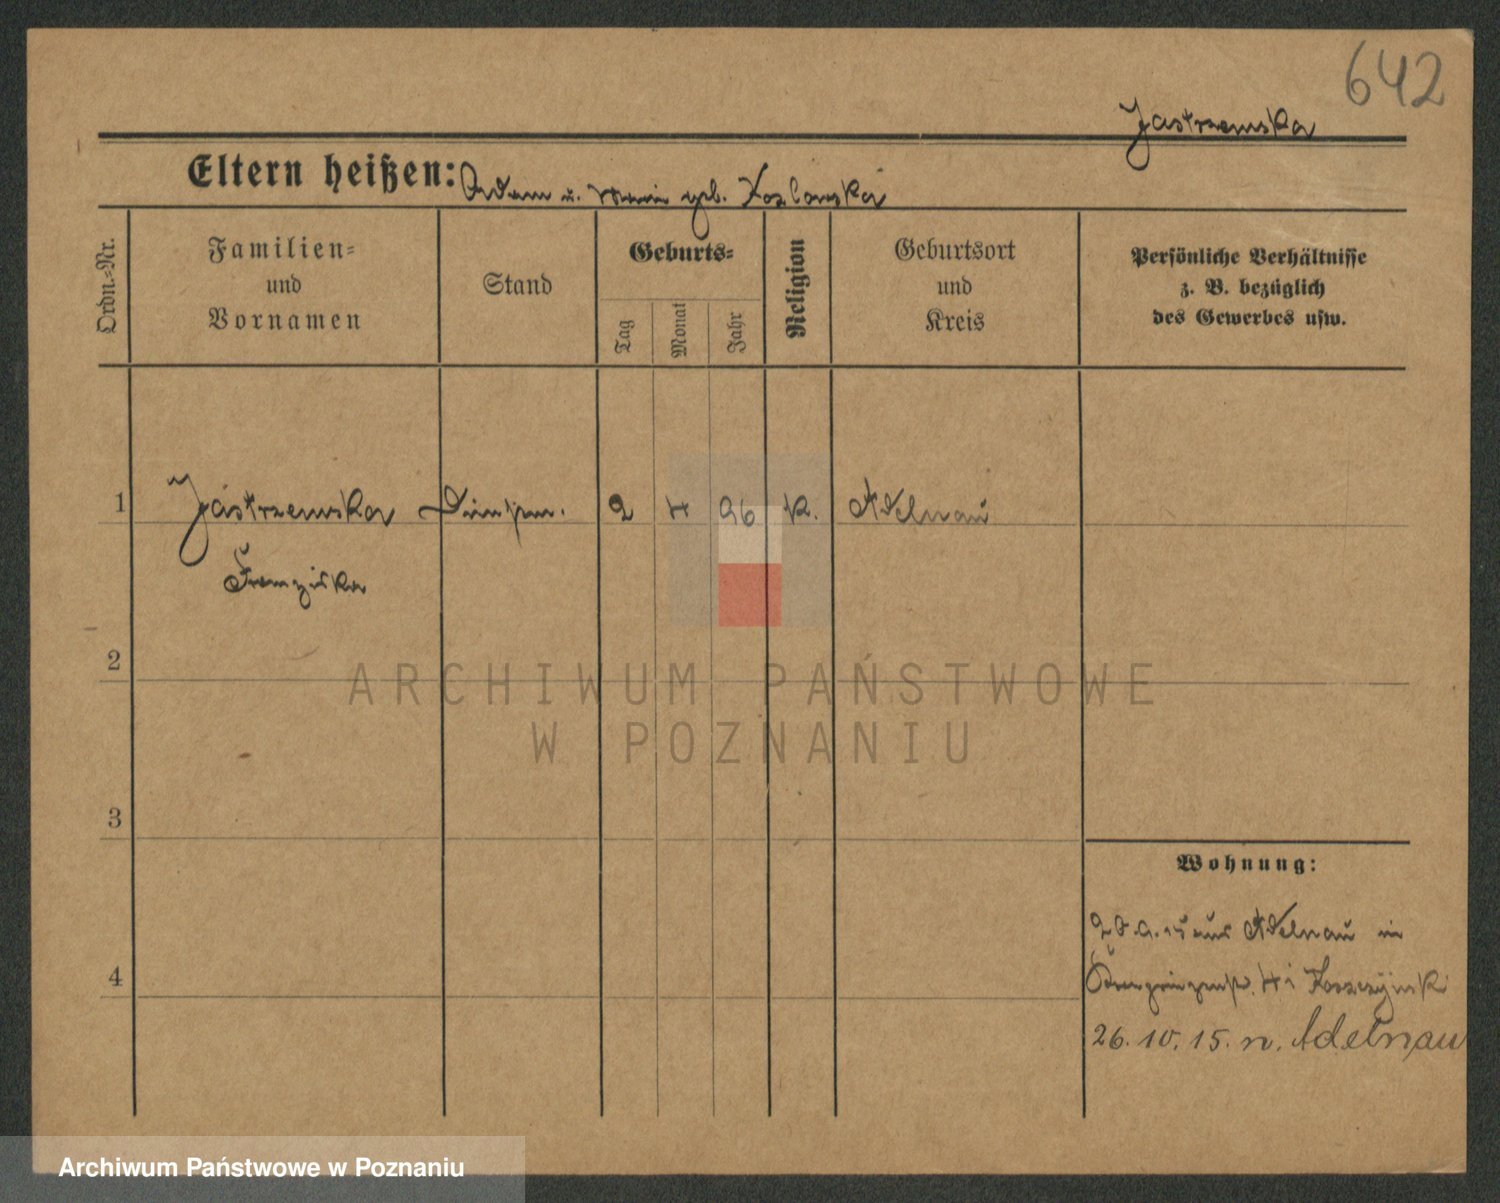 642
Jastrzemska
Eltern heißen: Adam u. Maria geb. Kozlowska
Ordn.=Nr.
Familien=
und
Vornamen
Stand
Geburts=
Tag
Monat
Jahr
Religion
Geburtsort
und
Kreis
Persönliche Verhältnisse
z. B. bezüglich
des Gewerbes usw.
1 Jastrzemska 2 4 96 K. Adelnau
Franziska
2
3
4
Wohnung:
9.15 aus Adelnau in
Kronprinzenstr.
26. 10. 15. n. Adelnau
ARCHIWUM PAŃSTWOWE
W POZNANIU
Archiwum Państwowe w Poznaniu